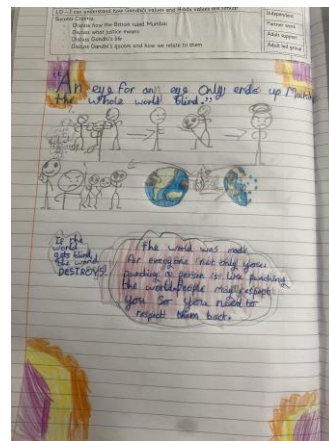 LO - I can understand how Gandhi's values and Hindu values are similar
Success Criteria
Discuss how the British ruled Mumbai
Discuss what justice means
Discuss Gandhi's life
Discuss Gandhi's quotes and how we relate to them
Independent
Partner work
Adult support
Adult led group
"An eye for an eye Only ends up Making
the whole world blind."
If the
world
gets blind
the world
DESTROYS!
The world was made
for everyone not only you.
punching a person is like punching
the world. People may respect
you so you need to
respect them back.